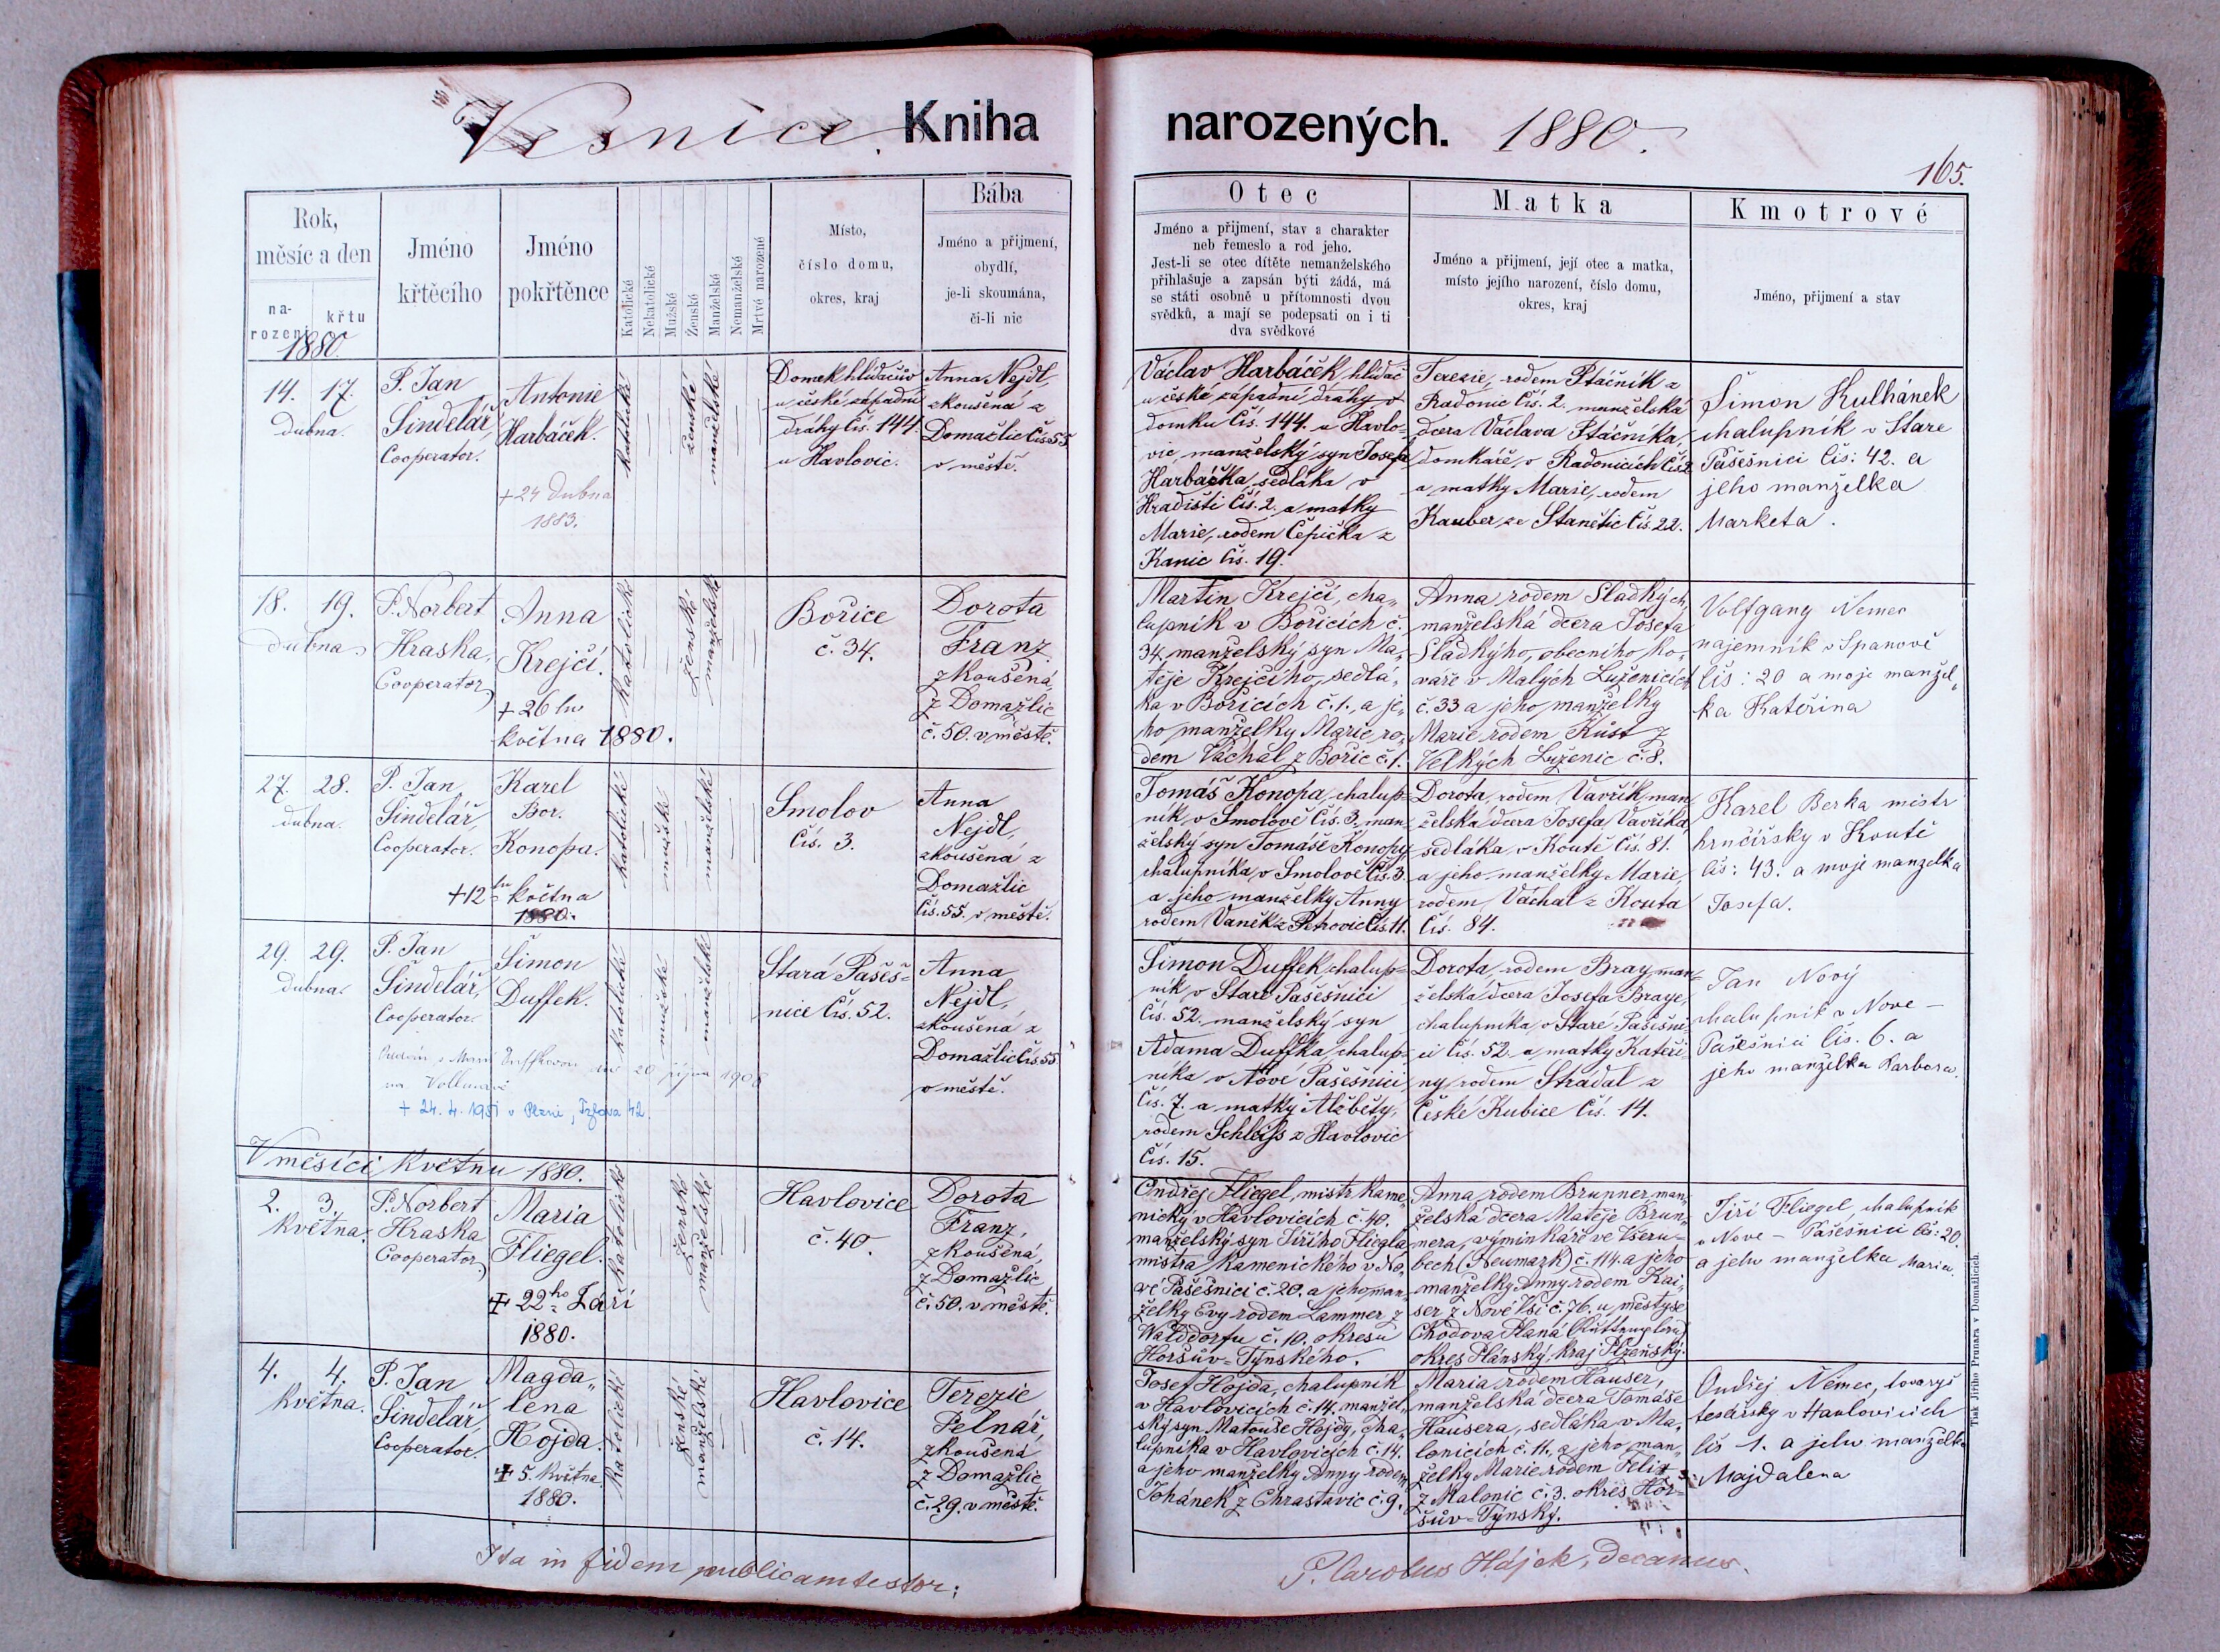 Vesnice. Kniha narozených. 1880.
165.
Rok,
měsíc a den
na-
rození
křtu
1880.
Jméno
křtěcího
Jméno
pokřtěnce
Katolické
Nekatolické
Mužské
Ženské
Manželské
Nemanželské
Mrtvě narozené
Místo,
číslo domu,
okres, kraj
Bába
Jméno a přijmení,
obydlí,
je-li skoumána,
či-li nic
Otec
Jméno a přijmení, stav a charakter
neb řemeslo a rod jeho.
Jest-li se otec dítěte nemanželského
přihlašuje a zapsán býti žádá, má
se státi osobně u přítomnosti dvou
svědků, a mají se podepsati on i ti
dva svědkové
Matka
Jméno a přijmení, její otec a matka,
místo jejího narození, číslo domu,
okres, kraj
Kmotrové
Jméno, přijmení a stav
14. 17.
dubna.
P. Jan
Šindelář,
Cooperator.
Antonie
Harbáček.
+ 24 Dubna
1883.
katolické
ženské
manželské
Domek hlídačův
u české západní
dráhy Čís. 144.
u Havlovic.
Anna Nejdl,
zkoušená z
Domažlic Čís. 55
v městě.
Václav Harbáček, hlídač
u české západní dráhy v
domku Čís. 144. u Havlo-
vic, manželský syn Josefa
Harbáčka, sedláka v
Hradišti Čís. 2. a matky
Marie, rodem Čepička z
Kanic Čís. 19.
Terezie, rodem Ptáčník z
Radonic Čís. 2. manželská
dcera Václava Ptáčníka,
domkáře, v Radonicích Čís. 2
a matky Marie, rodem
Kauber ze Stanětic Čís. 22.
Šimon Kulhánek
chalupník v Stare
Pašešnici čis: 42. a
jeho manželka
Marketa.
18. 19.
dubna
P. Norbert
Hraska,
Cooperator
Anna
Krejčí.
+ 26 ho
května 1880.
Katolické
Ženské
manželské
Bořice
č. 34.
Dorota
Franz
zkoušená
z Domažlic
č. 50. v městě.
Martin Krejčí, cha„
lupník v Bořicích č.
34. manželský syn Ma„
těje Krejčího, sedlá„
ka v Bořicích č. 1., a je„
ho manželky Marie ro„
dem Váchal z Bořic č. 1.
Anna, rodem Sladkých,
manželská dcera Josefa
Sladkýho, obecního ko„
váře v Malých Luženicích
č. 33 a jeho manželky
Marie rodem Küst z
Velkých Luženic č. 8.
Volfgang Nemec
najemník v Spanově
čis: 20 a moje manžel„
ka Kateřina
27. 28.
dubna.
P. Jan
Šindelář,
Cooperator.
Karel
Bor.
Konopa.
+ 12 ho května
1880.
katolické
mužské
manželské
Smolov
Čís. 3.
Anna
Nejdl,
zkoušená z
Domažlic
Čís. 55. v městě.
Tomáš Konopa, chalup-
ník, v Smolově Čís. 3. man-
želský syn Tomáše Konopy,
chalupníka, v Smolově Čís. 3.
a jeho manželky Anny
rodem Vaněk z Petrovic Čís. 11.
Dorota, rodem Vavřík, man-
želská dcera Josefa Vavříka
sedláka, v Koutě Čís. 81.
a jeho manželky Marie,
rodem Váchal z Kouta
Čís. 84.
Karel Berka mistr
hrnčířsky v Koutě
čis: 43. a moje manzelka
Josefa.
29. 29.
dubna.
P. Jan
Šindelář,
Cooperator.
Šimon
Duffek.
katolické
mužské
manželské
Stará Pašeš-
nice Čís. 52.
Anna
Nejdl,
zkoušená z
Domažlic Čís. 55
v městě.
Oddán s Marií Duffkovou dne 20 října 1908
+ 24. 4. 1951 v Plzni, 42.
Šimon Duffek, chalup-
ník, v Staré Pašešnici
Čís. 52. manželský syn
Adama Duffka, chalup-
níka v Nové Pašešnici
Čís. 7. a matky Alžběty,
rodem Schleiss z Havlovic
Čís. 15.
Dorota, rodem Bray, man-
želská dcera Josefa Braye,
chalupníka, v Staré Pašešni-
ci Čís. 52. a matky Kateři-
ny, rodem Stradal z
České Kubice Čís. 14.
Jan Nový
chalupník v Nove -
Pašešnici čis. 6. a
jeho manželka Barbora.
V měsíci Květnu 1880.
2. 3.
Května.
P. Norbert
Hraska
Cooperator
Maria
Fliegel.
+ 22ho Září
1880.
Katolické
Ženské
manželské
Havlovice
č. 40.
Dorota
Franz,
zkoušená
z Domažlic
č. 50. v městě.
Ondřej Fliegel, mistr kame„
nický v Havlovicích č. 40.
manželský syn Jiřího Fliegla
mistra kamenického v No„
vé Pašešnici č. 20. a jeho man„
želky Evy rodem Lammer z
Walddorfu č. 10. okresu
Horšův-Týnského.
Anna, rodem Brunner, man„
želská dcera Matěje Brun„
nera, výminkáře ve Všeru-
bech (Neumark) č. 114. a jeho
manželky Anny rodem Kai„
ser z Nové Vsi č. 76. u městyse
Chodova Planá
okres Plánský, kraj Plzeňský.
Jiří Fliegel, chalupník
v Nove - Pašešnici čis: 20.
a jeho manželka Maria.
4. 4.
Května.
P. Jan
Šindelář
Cooperator.
Magda„
lena
Hojda.
+ 5. Května
1880.
Katolické
ženské
manželské
Havlovice
č. 14.
Terezie
Felnář,
zkoušená
z Domažlic
č. 29. v městě.
Josef Hojda, chalupník
v Havlovicích č. 14, manžel„
ský syn Matouše Hojdy, cha„
lupníka v Havlovicích č. 14.
a jeho manželky Anny rodem
Johánek z Chrastavic č. 9.
Maria, rodem Hauser,
manželská dcera Tomáše
Hausera, sedláka v Ma„
lonicích č. 11. a jeho man„
želky Marie rodem Felix
z Malonic č. 3. okres Hor-
šův-Týnský.
Ondřej Němec, tovaryš
tesařsky v Havlovicich
čis 1. a jeho manželka
Majdalena
Ita in fidem publicam testor:
P. Carolus Hájek, decanus.
Tisk Jiřího Prunara v Domažlicích.